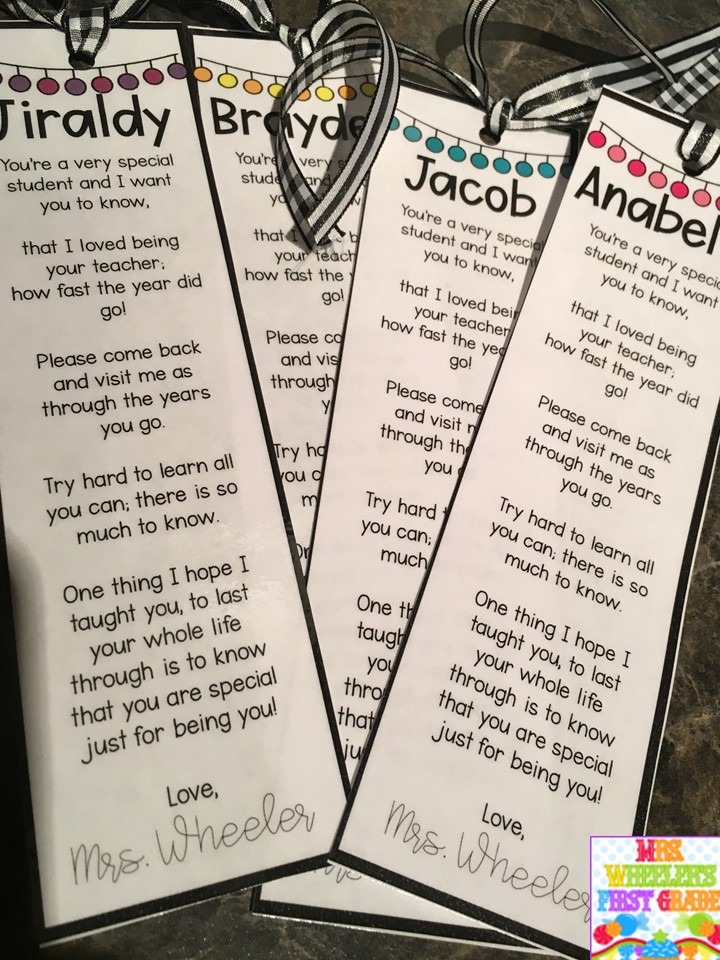 Jiraldy
You're a very special
student and I want
you to know,
that I loved being
your teacher;
how fast the year did
go!
Please come back
and visit me as
through the years
you go.
Try hard to learn all
you can; there is so
much to know.
One thing I hope I
taught you, to last
your whole life
through is to know
that you are special
just for being you!
Love,
Mrs. Wheeler
Brayde
You're very
and
that I
your teach
how fast the
go!
Please co
and vis
through
Try
you c
Jacob
You're a very special
student and I want
you to know,
that I loved bei
your teacher
how fast the yea
go!
Please come
and visit
through th
you
Try hard
you can;
much
One th
taugh
you
thro
that
ju
Anabel
You're a very specia
student and I want
you to know,
that I loved being
your teacher;
how fast the year did
go!
Please come back
and visit me as
through the years
you go.
Try hard to learn all
you can; there is so
much to know.
One thing I hope I
taught you, to last
your whole life
through is to know
that you are special
just for being you!
Love,
Mrs. Wheeler
MRS.
WHEELER'S
FIRST GRADE